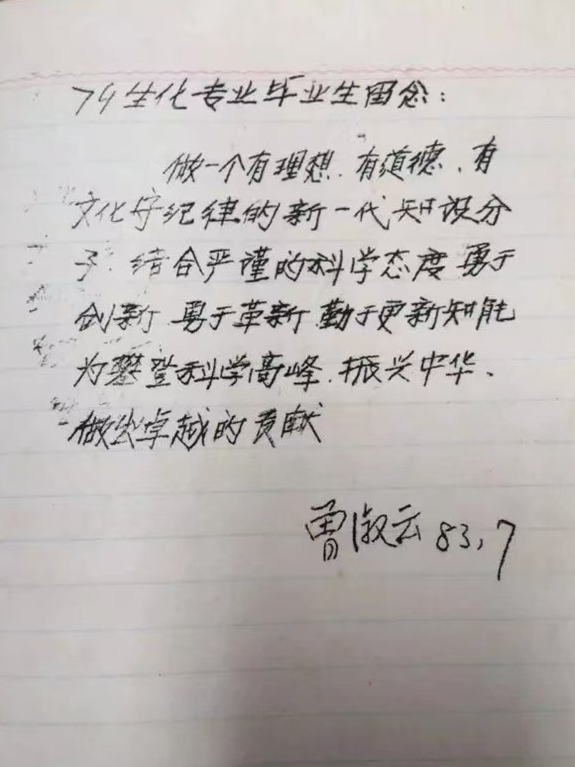 79生化专业毕业生留念：
做一个有理想、有道德、有
文化守纪律的新一代知识分
子。结合严谨的科学态度 勇于
创新 勇于革新 勤于更新知能
为攀登科学高峰、振兴中华、
做出卓越的贡献
曾淑云 83,7